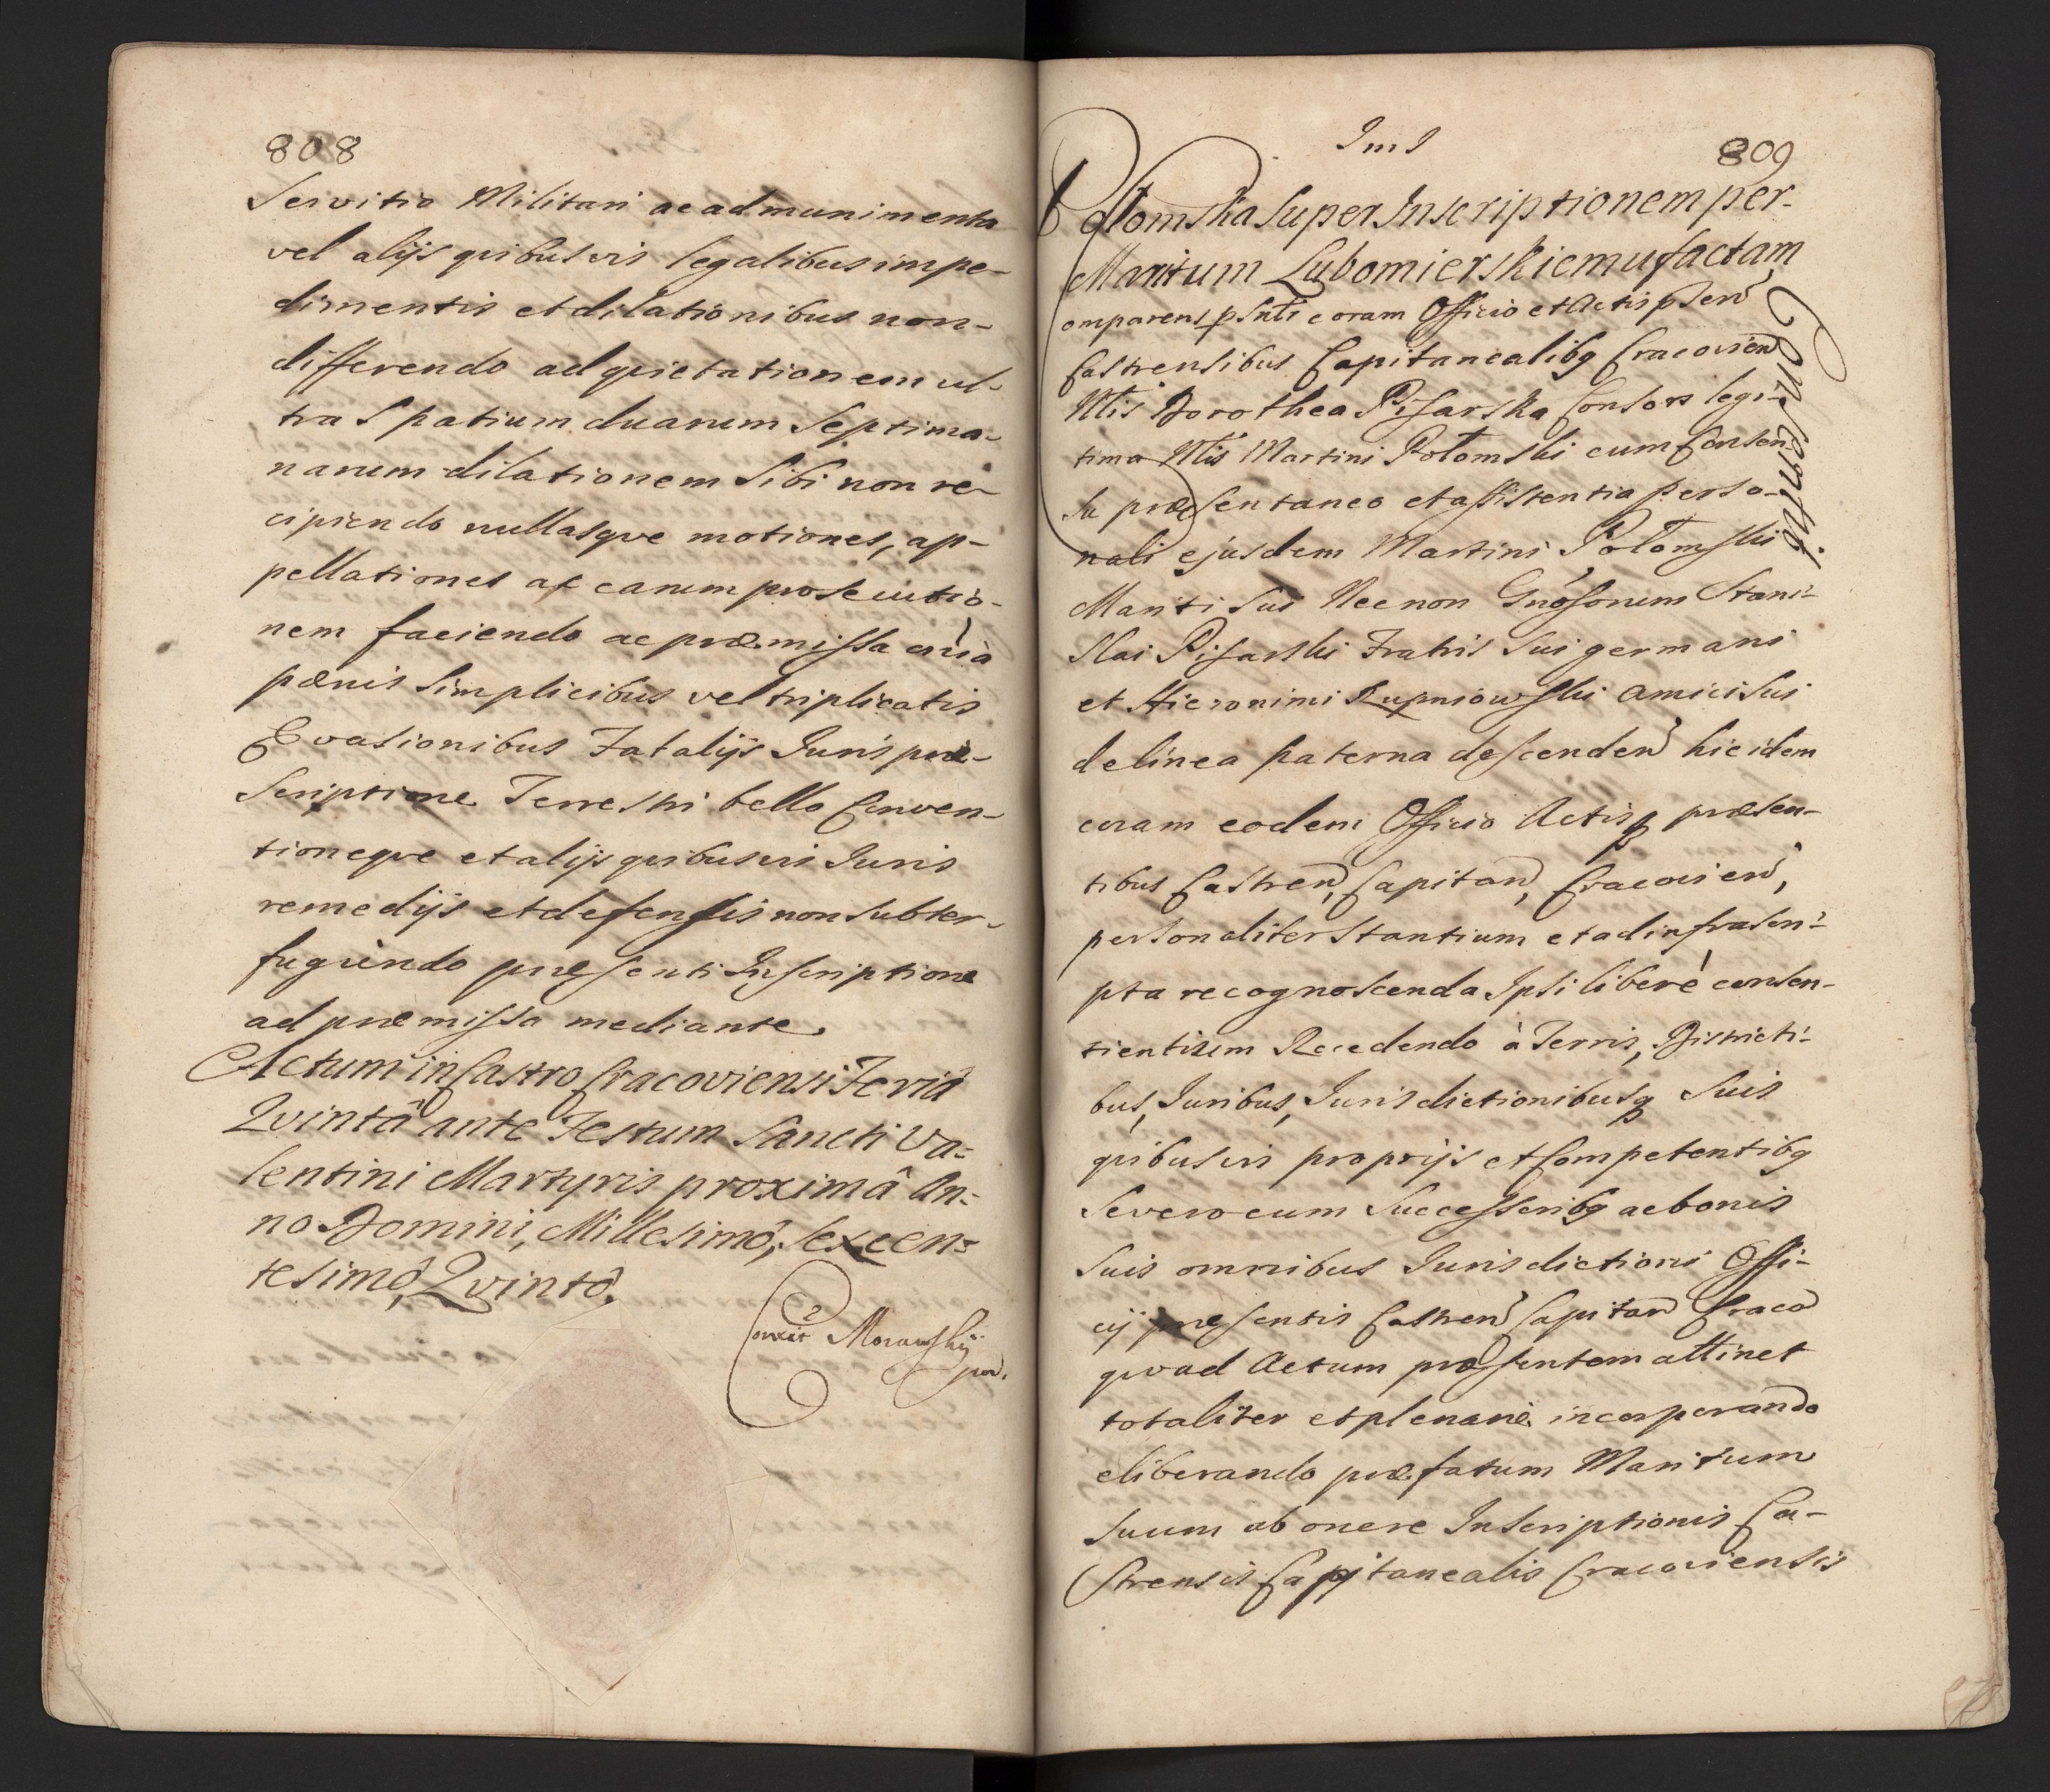 808
Servitio Militari ac ad munimenta
vel alijs quibusvis legalibus impe-
dimentis et dilationibus non-
differendo ad quietationem ul-
tra Spatium duarum Septima-
narum dilationem Sibi non re-
cipiendo nullasqve motiones, ap-
pellationes ac earum prosecutio-
nem faciendo ac præmissa oĩa
pænis Simplicibus vel triplicatis
Evasionibus Fatalijs Juris præ-
Scriptione Terrestri bello Conven-
tioneqve et alijs quibusvis Juris
remedijs et defensis non Subter-
fugiendo præsenti Inscriptione
ad præmissa mediante.
Actum in Castro Cracoviensi Feriâ
Qvintâ ante Festum Sancti Va=
lentini Martyris proximâ An=
no Domini, Millesimô, Sexcen=
tesimô, Qvintô.
Morawskij
Jms
809
Potomska Super Inscriptionem per-
Maritum Lubomierskiemu factam
Consensus.
omparens pñtr coram Officio et Actis pñen
Castrensibus Capitanealibq Cracovien
Nlis Dorothea Pisarska Consors legi-
tima Nlis Martini Potomski cum Consen-
su præsentaneo et assistentia perso-
nali ejusdem Martini Potomski
Mariti Sui Necnon Gnosorum Stani-
slai Pisarski Fratris Sui germani
et Hieronimi Rupniowski amici Sui
de linea paterna descenden hic idem
coram eodem Officio Actisq præsen-
tibus Castren, Capitan, Cracovien,
personaliter Stantium et ad infrascri-
pta recognoscenda Ipsi liberè consen-
tientium Recedendo à Terris, Districti-
bus, Juribus, Jurisdictionibusq Suis
quibusvis proprijs et Competentibq
Se vero cum Successoribq ac bonis
Suis omnibus Jurisdictioni Offi-
cij præsentis Castren Capitan Craco
quoad Actum præsentem attinet
totaliter et plenariè incorporando
eliberando præfatum Maritum
Suum ab onere Inscriptionis Ca-
strensis Capitanealis Cracoviensis